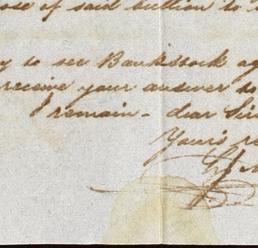 ose of said bullion to
y to see Bankstock ag
receive your answer to
I remain - dear Sir
Your's re